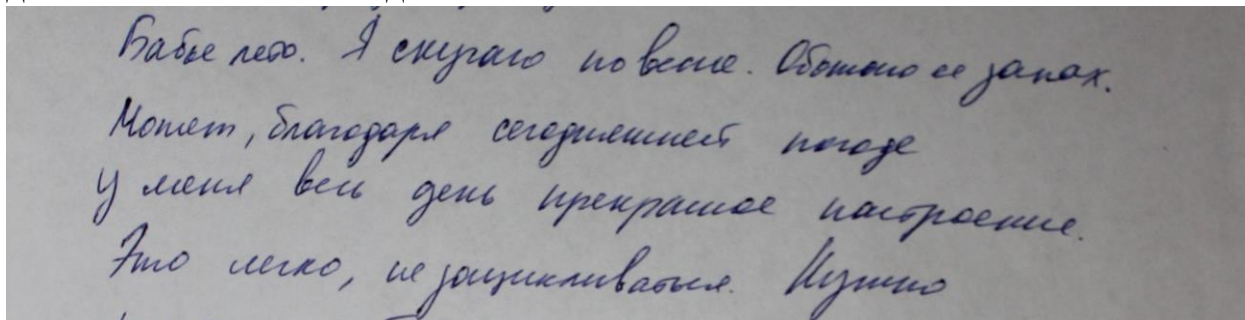 Бабье лето. Я скучаю по весне. Обожаю ее запах.
Может, благодаря сегодняшней погоде
у меня весь день прекрасное настроение.
Это легко, не зацикливаться. Нужно